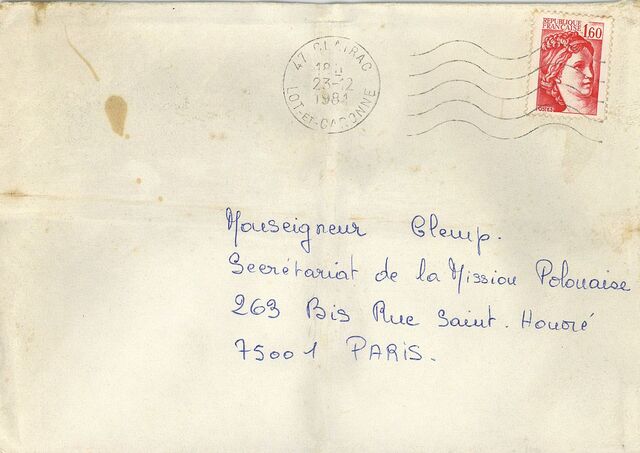 47 CLAIRAC
18H
23-12
1981
LOT-ET-GARONNE
REPUBLIQUE
FRANCAISE
1,60
POSTES
Monseigneur Glemp.
Secrétariat de la Mission Polonaise
263 Bis Rue Saint. Honoré
75001 PARIS.